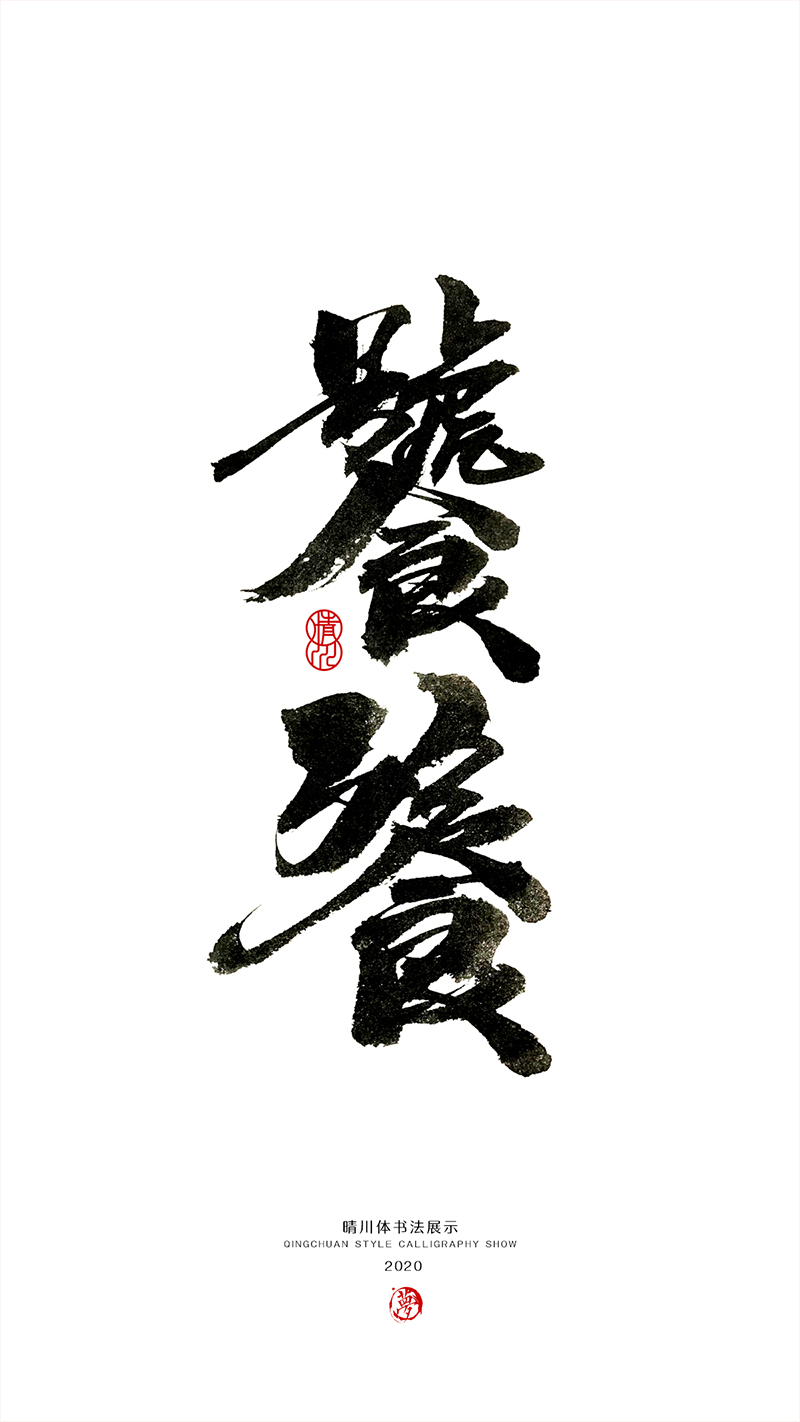 饕餮
晴川
晴川体书法展示
QINGCHUAN STYLE CALLIGRAPHY SHOW
2020
夢